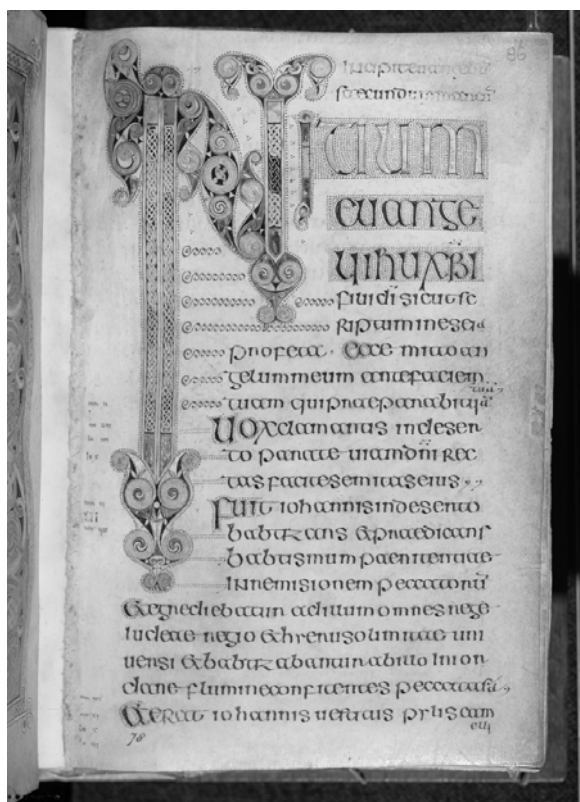 86
secundum marcum
INITIUM
euange
lii ihu xpi
filii di sicut sc
riptum in esaia
profeta . Ecce mitto an
gelum meum ante faciem
tuam qui praeparabit uiā
Uox clamantis in deser
to parate uiam dni rec
tas facite semitas eius
Fuit iohannis in deserto
babtizans & praedicans
babtismum paenitentiae
in remisionem peccatorū
& egrediebatur ad illum omnes
iudeae regio & hierusolimitae uni
uersi & babtizabantur ab illo in ior
dane flumine confitentes peccata sua
& erat iohannis uestitus pylis cam
eli
78